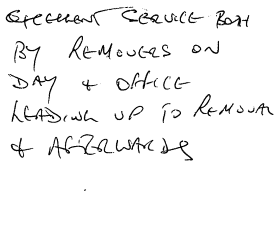 EXCELLENT SERVICE BOTH
BY REMOVERS ON
DAY & OFFICE
LEADING UP TO REMOVAL
& AFTERWARDS